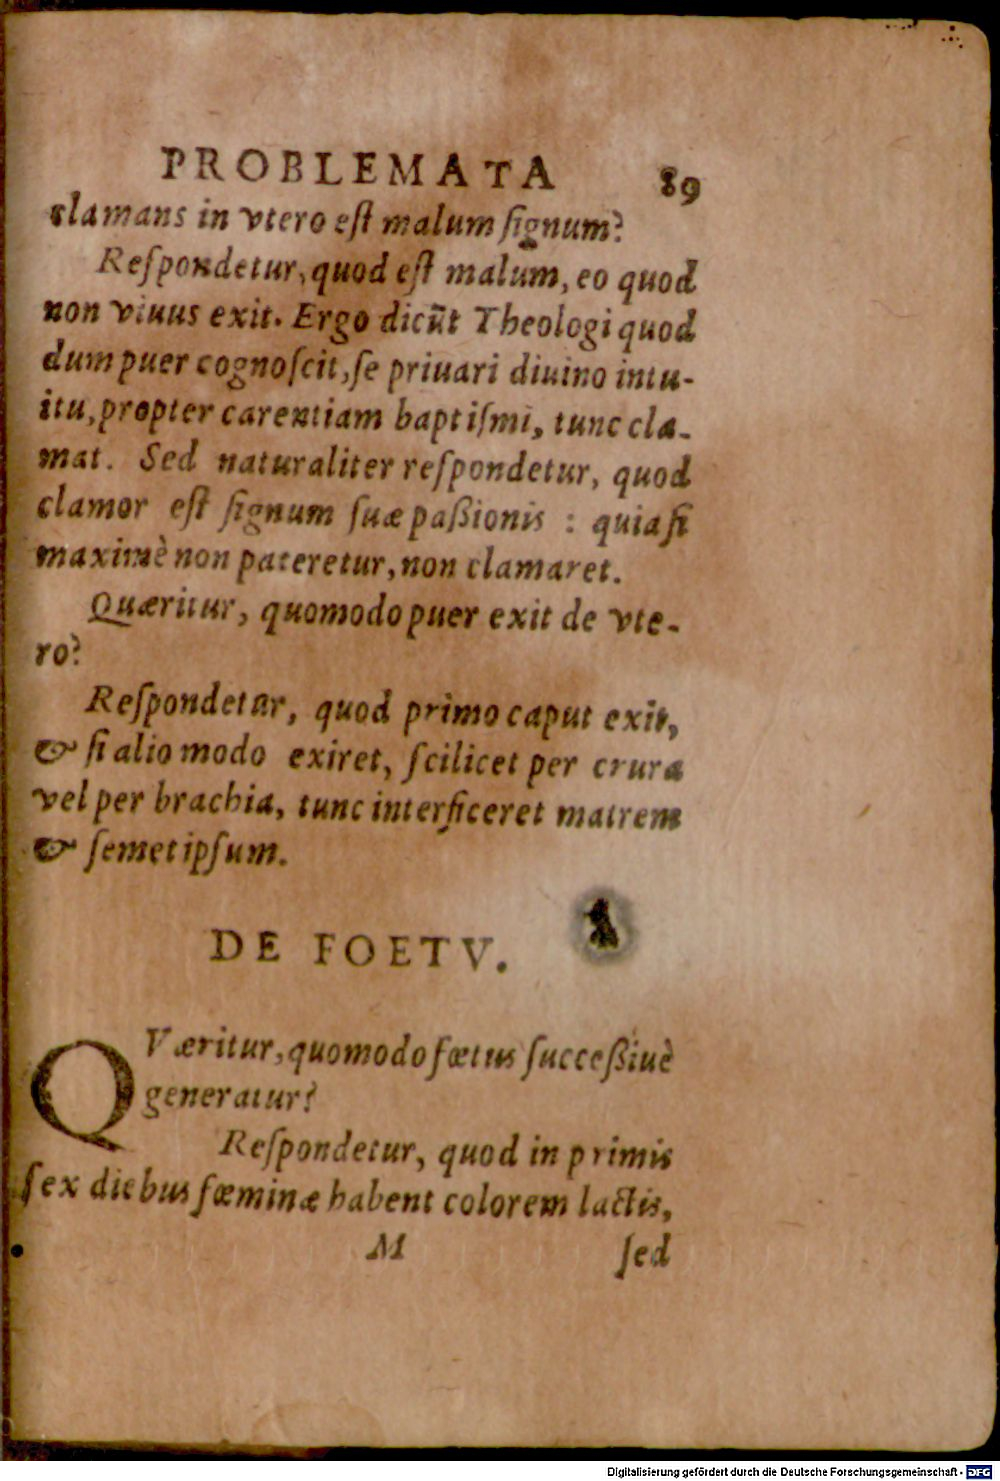 PROBLEMATA 89
clamans in vtero eſt malum ſignum?
Reſpondetur, quod eſt malum, eo quod
non viuus exit. Ergo dicũt Theologi quod
dum puer cognoſcit, ſe priuari diuino intu-
itu, propter carentiam baptiſmi, tunc cla-
mat. Sed naturaliter reſpondetur, quod
clamor eſt ſignum ſuæ paßionis : quia ſi
maximè non pateretur, non clamaret.
Quæritur, quomodo puer exit de vte-
ro?
Reſpondetur, quod primo caput exit,
& ſi alio modo exiret, ſcilicet per crura
vel per brachia, tunc interficeret matrem
& ſemetipſum.
DE FOETV.
QVæritur, quomodo fœtus ſucceßiuè
generatur?
Reſpondetur, quod in primis
ſex diebus fœminæ habent colorem lactis,
M ſed
Digitalisierung gefördert durch die Deutsche Forschungsgemeinschaft - DFG